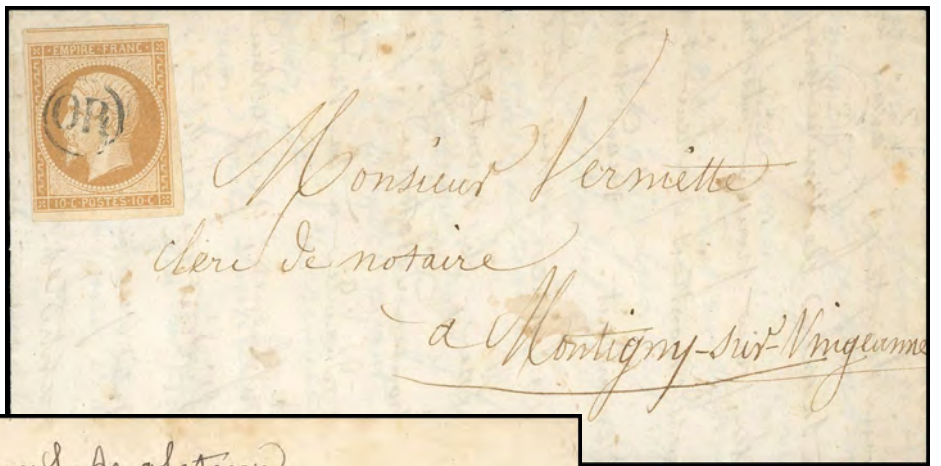 EMPIRE·FRANC·
OR
10·C·POSTES·10·C
Monsieur Vermiette
clerc de notaire
a Montigny-sur-Vingeanne